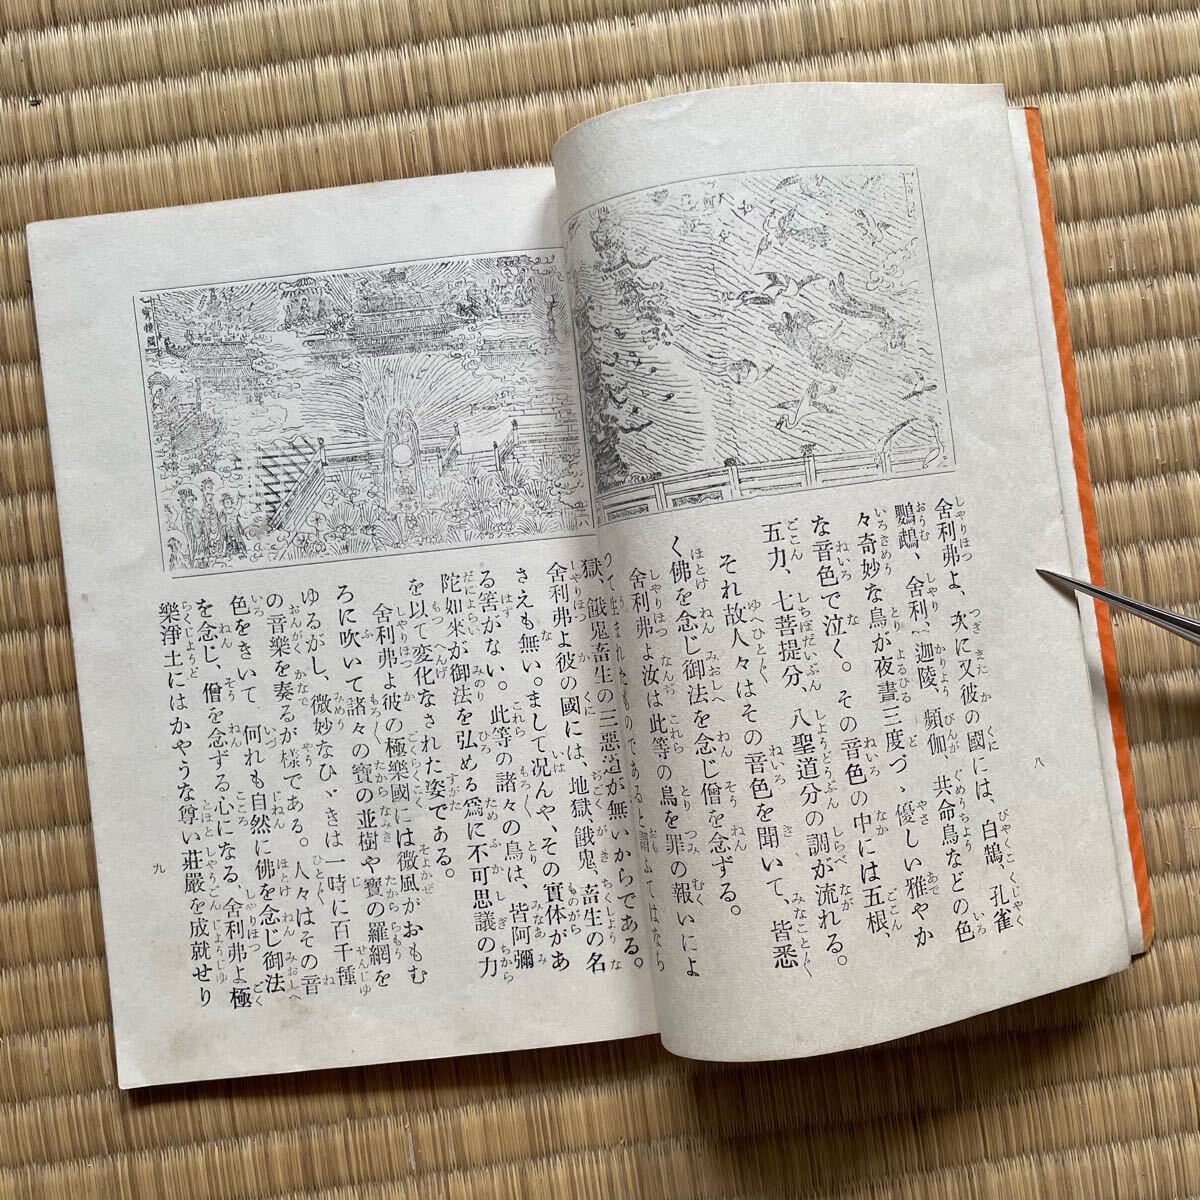 舍利弗よ、次に又彼の國には、白鵠、孔雀
鸚鵡、舍利、迦陵、頻伽、共命鳥などの色
々奇妙な鳥が夜晝三度づゝ優しい雅やか
な音色で泣く。その音色の中には五根、
五力、七菩提分、八聖道分の調が流れる。
それ故人々はその音色を聞いて、皆悉
く佛を念じ御法を念じ僧を念ずる。
舍利弗よ汝は此等の鳥を罪の報いによ
つて生まれたものであると謂ふてはなら
八
獄、餓鬼畜生の三惡道が無いからである。
舍利弗よ彼の國には、地獄、餓鬼、畜生の名
さえも無い。まして況んや、その實体があ
る筈がない。此等の諸々の鳥は、皆阿彌
陀如來が御法を弘める爲に不可思議の力
を以て変化なされた姿である。
舍利弗よ彼の極樂國には微風がおもむ
ろに吹いて諸々の寶の並樹や寶の羅網を
ゆるがし、微妙なひゞきは一時に百千種
の音樂を奏るが様である。人々はその音
色をきいて、何れも自然に佛を念じ御法
を念じ、僧を念ずる心になる、舍利弗よ極
樂淨土にはかやうな尊い莊嚴を成就せり
九